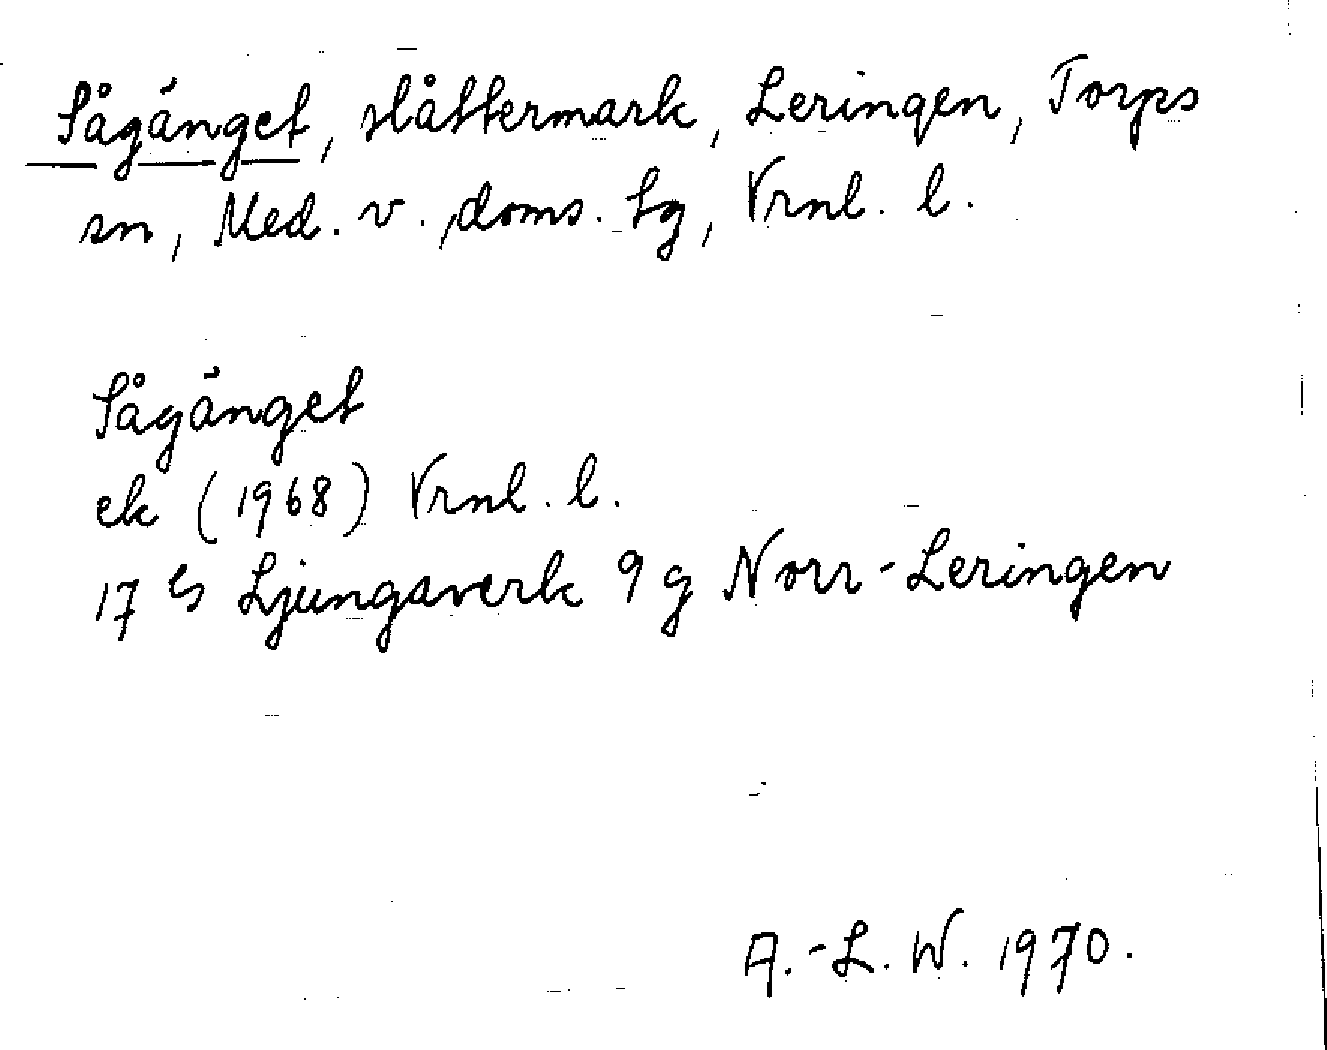 Sågänget, slåttermark, Leringen, Torps
sn, Med. v. doms. tg, Vrnl. l.
Sågänget
ek (1968) Vrnl. l.
17 G Ljungaverk 9 g Norr-Leringen
A.-L. W. 1970.